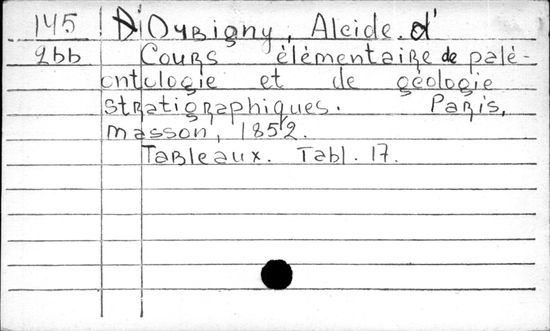 145 D'Orbigny, Alcide. d'
2bb Cours élémentaire de palé-
ontologie et de géologie
stratigraphiques. Paris,
Masson, 1852.
Tableaux. Tabl. 17.